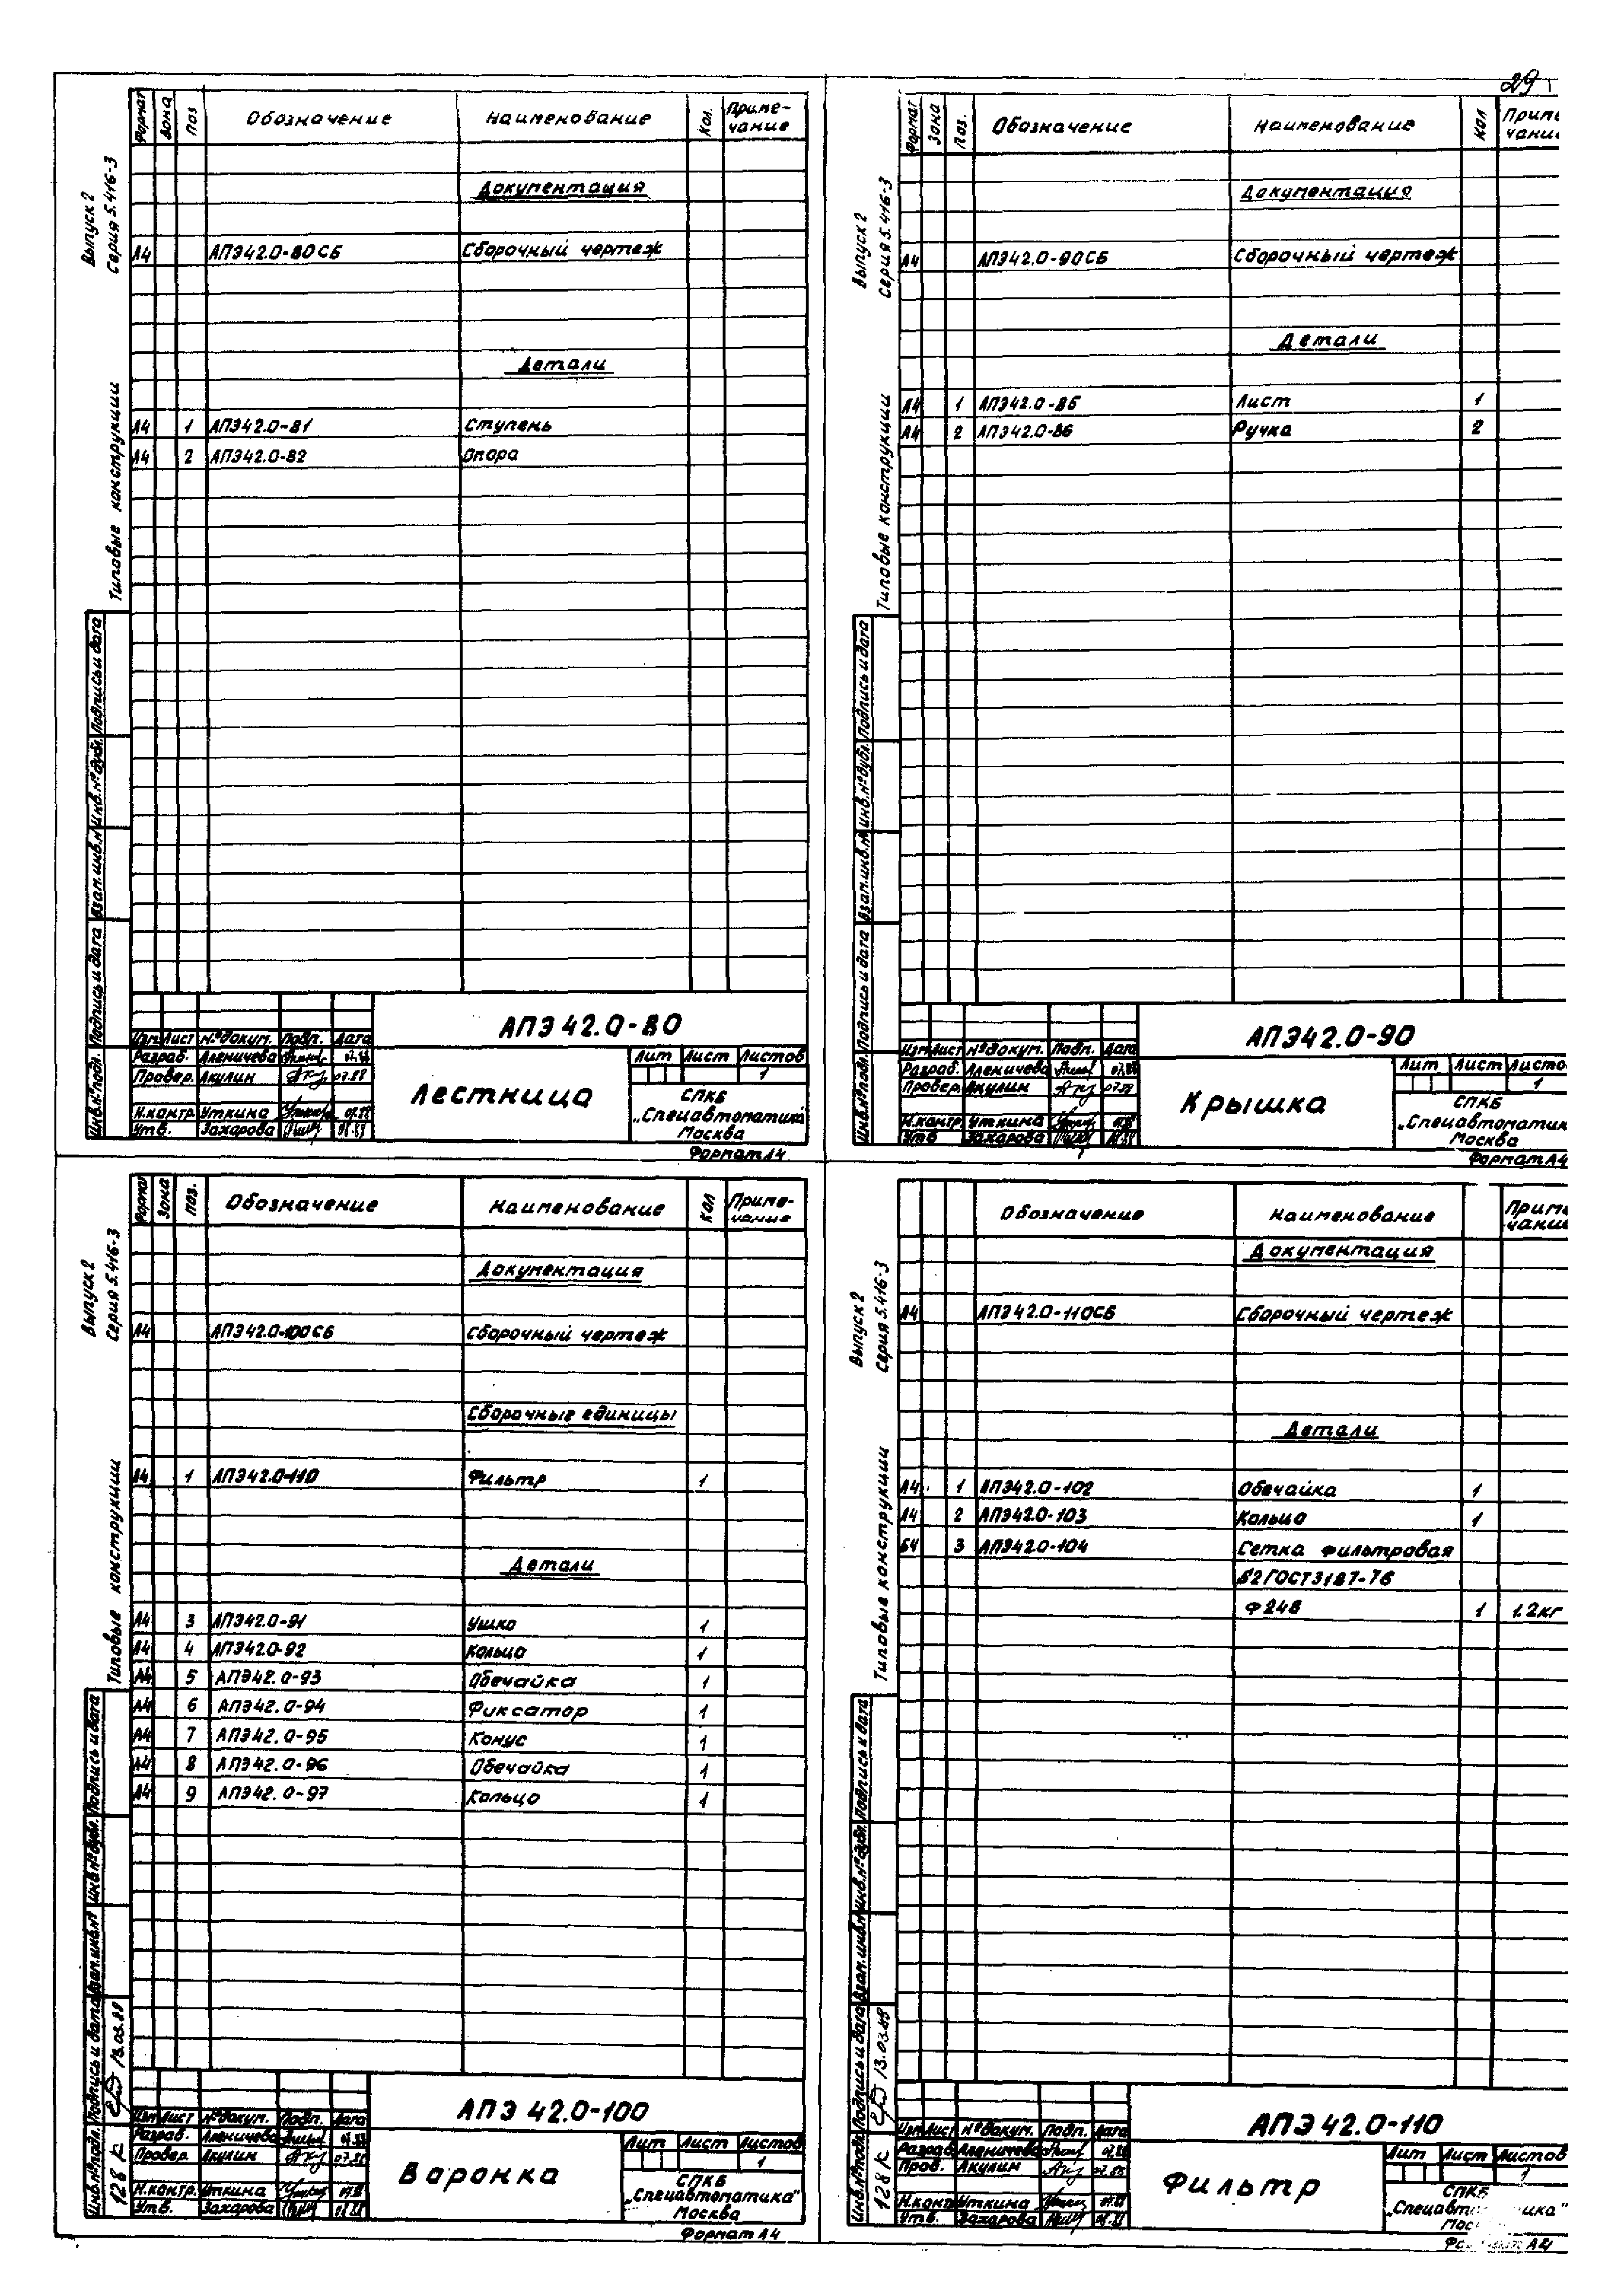 29
Выпуск 2
Серия 5.416-3
Типовые конструкции
Формат Зона Поз Обозначение Наименование Кол. Приме-
чание
Документация
А4 АПЭ42.0-80СБ Сборочный чертеж
Детали
А4 1 АПЭ42.0-81 Ступень
А4 2 АПЭ42.0-82 Опора
Инв.№подл. Подпись и дата Взам.инв.№ Инв.№дубл. Подпись и дата
АПЭ 42.0-80
Изм Лист №докум. Подп. Дата
Разраб. Аленичева 07.88
Провер. Акулин 07.88
Н.контр. Уткина 07.88
Утв. Захарова 08.88
Лестница
Лит Лист Листов
1
СПКБ
„Спецавтоматика"
Москва
Формат А4
Выпуск 2
Серия 5.416-3
Типовые конструкции
Формат Зона Поз. Обозначение Наименование Кол Приме
чани
Документация
А4 АПЭ42.0-90СБ Сборочный чертеж
Детали
А4 1 АПЭ42.0-85 Лист 1
А4 2 АПЭ42.0-86 Ручка 2
Инв.№подл. Подпись и дата Взам.инв.№ Инв.№дубл. Подпись и дата
АПЭ42.0-90
Изм Лист №докум. Подп. Дата
Разраб. Аленичева 07.88
Провер. Акулин 07.88
Н.контр. Уткина 07.88
Утв Захарова
Крышка
Лит Лист Листо
1
СПКБ
„Спецавтоматик
Москва
Формат А4
Выпуск 2
Серия 5.416-3
Типовые конструкции
Формат Зона Поз. Обозначение Наименование Кол Приме-
чание
Документация
А4 АПЭ42.0-100СБ Сборочный чертеж
Сборочные единицы
А4 1 АПЭ42.0-110 Фильтр 1
Детали
А4 3 АПЭ42.0-91 Ушко 1
А4 4 АПЭ42.0-92 Кольцо 1
А4 5 АПЭ42.0-93 Обечайка 1
А4 6 АПЭ42.0-94 Фиксатор 1
А4 7 АПЭ42.0-95 Конус 1
А4 8 АПЭ42.0-96 Обечайка 1
А4 9 АПЭ42.0-97 Кольцо 1
Инв.№подл. Подпись и дата Взам.инв.№ Инв.№дубл. Подпись и дата
128 К 13.03.89
АПЭ 42.0-100
Изм Лист №докум. Подп. Дата
Разраб. Аленичева 07.88
Провер. Акулин 07.88
Н.контр. Уткина 07.88
Утв. Захарова 08.88
Воронка
Лит Лист Листов
1
СПКБ
„Спецавтоматика"
Москва
Формат А4
Выпуск 2
Серия 5.416-3
Типовые конструкции
Обозначение Наименование Приме
чание
Документация
А4 АПЭ42.0-110СБ Сборочный чертеж
Детали
А4 1 АПЭ42.0-102 Обечайка 1
А4 2 АПЭ42.0-103 Кольцо 1
Б4 3 АПЭ42.0-104 Сетка фильтровая
ГОСТ3187-76
Ф248 1 1.2кг
Инв.№подл. Подпись и дата Взам.инв.№ Инв.№дубл. Подпись и дата
128 К 13.03.89
АПЭ 42.0-110
Изм Лист №докум. Подп. Дата
Разраб. Аленичева 07.88
Пров. Акулин 07.88
Н.контр Уткина 07.88
Утв. Захарова 08.88
Фильтр
Лит Лист Листов
1
СПКБ
„Спецавто ика"
Мос
Фо А4